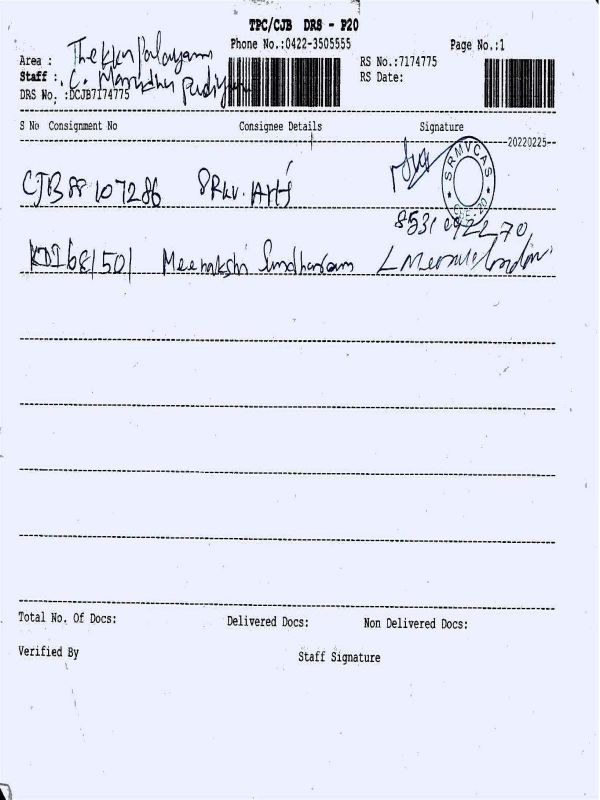 TPC/CJB DRS - P20
Phone No.:0422-3505555
Page No.:1
Area : Thekkupalayam
RS No.:7174775
Staff : C.
RS Date:
DRS No. :DCJB7174775
S No Consignment No Consignee Details Signature
20220225
CJB88107286 SRKV. Arts
SRMVCAS
CBE-20
8531092270
KDI681501 Meenakshi Sundharam
Total No. Of Docs: Delivered Docs: Non Delivered Docs:
Verified By Staff Signature